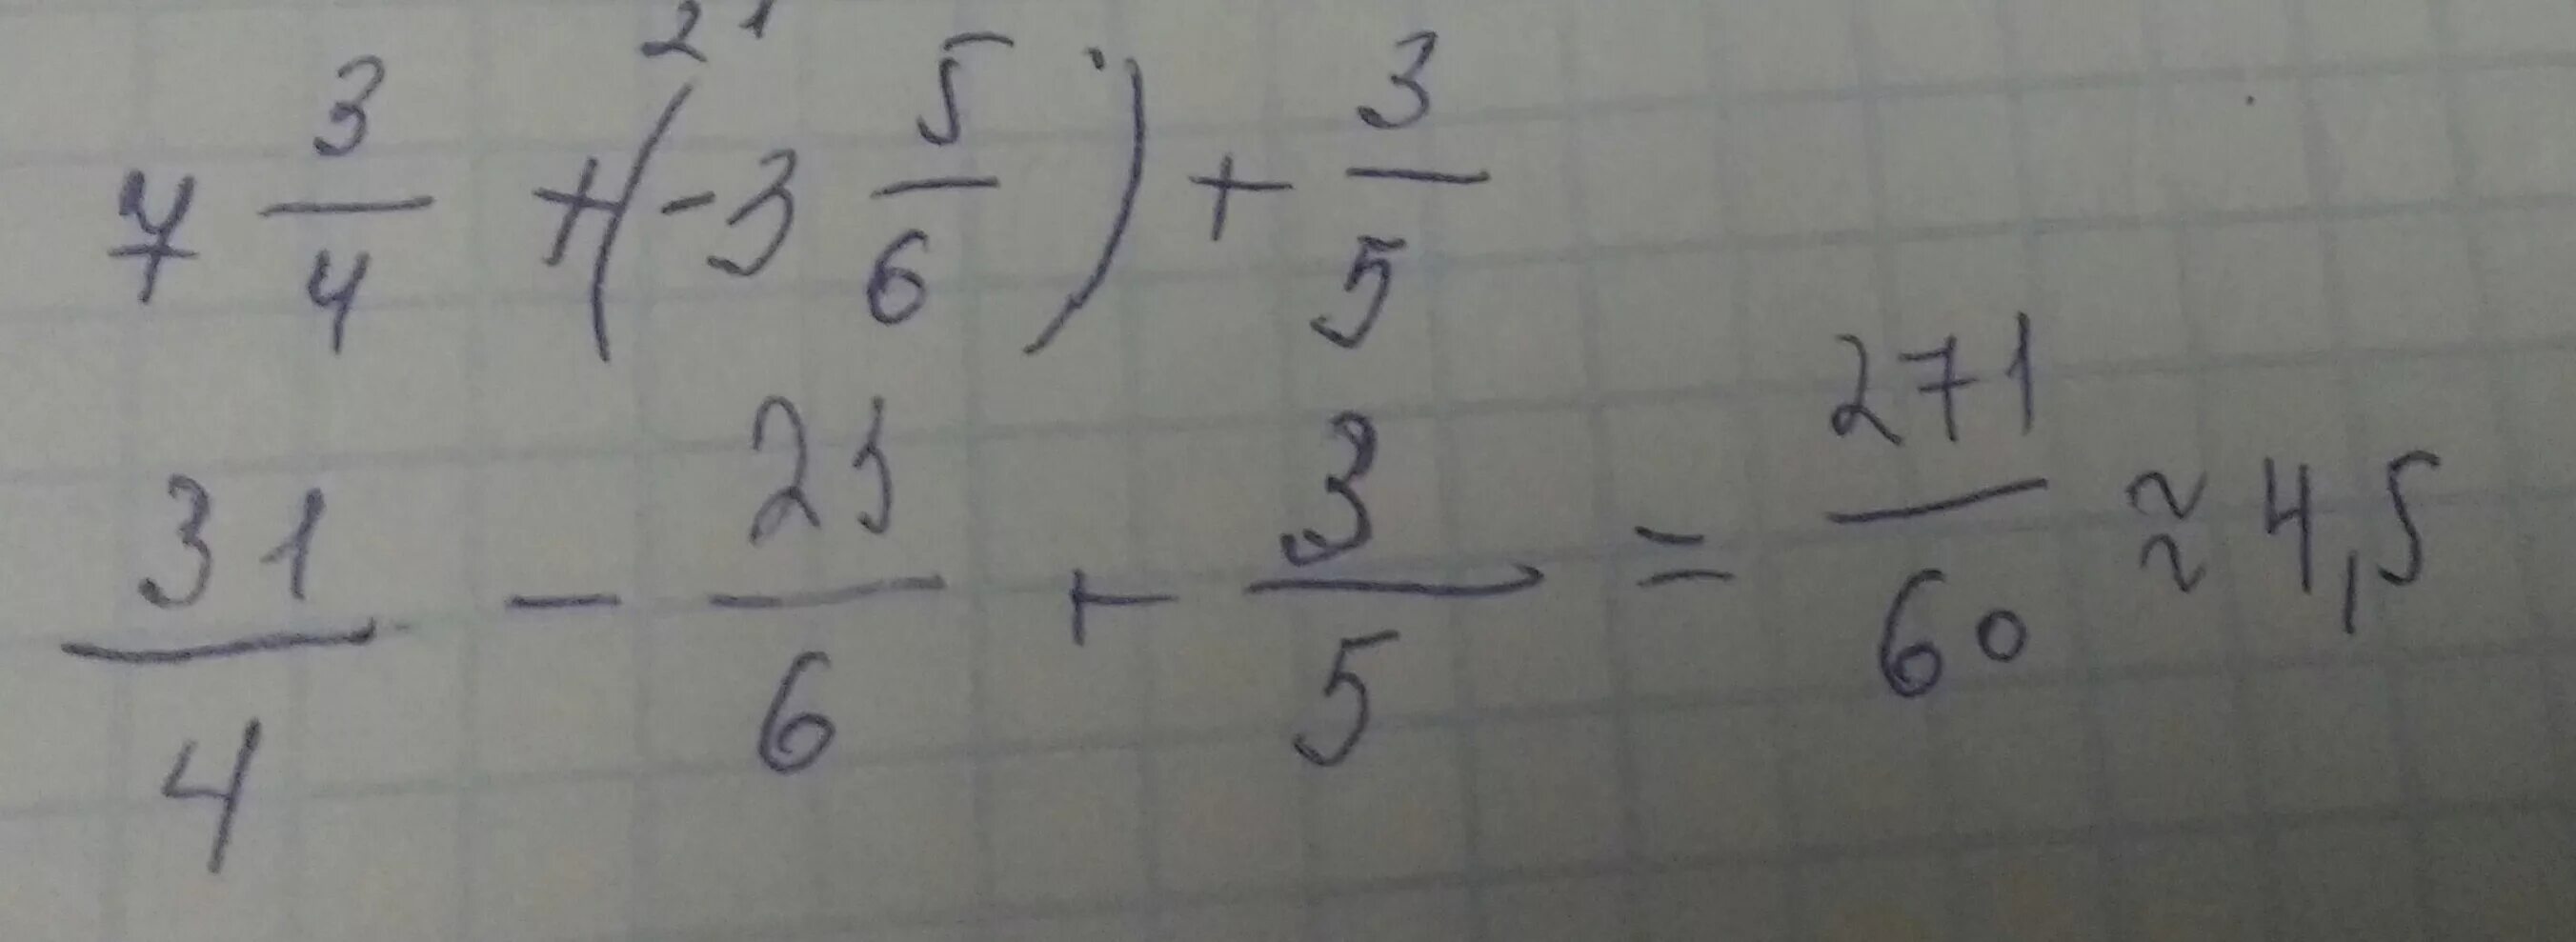 7 3/4 + (-3 5/6) + 3/5
31/4 - 23/6 + 3/5 = 271/60 ≈ 4,5